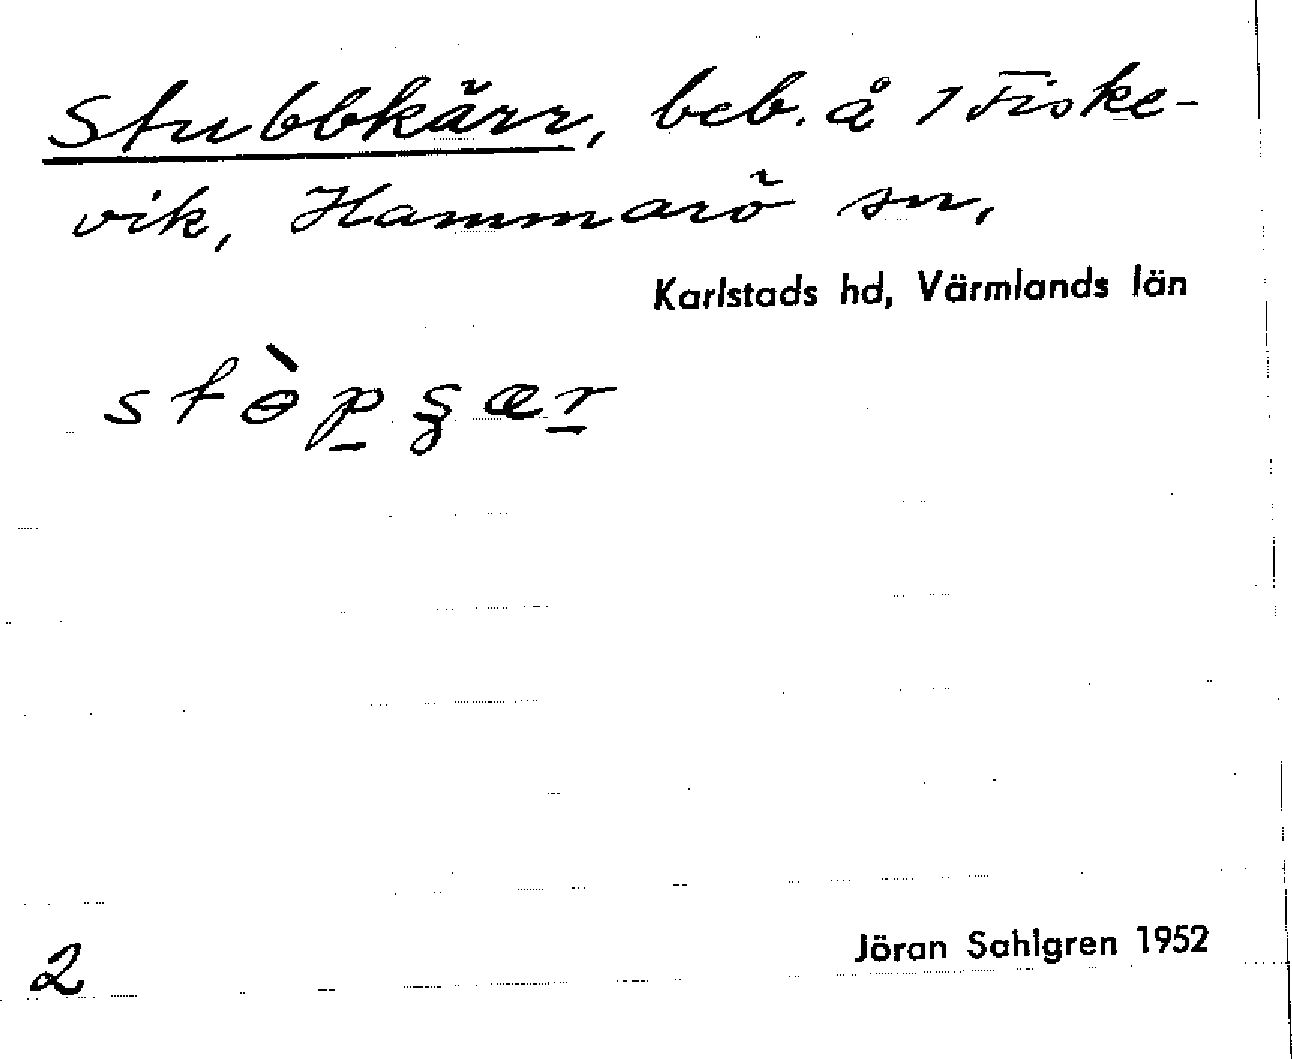 Stubbkärr, beb. å 1 Fiske-
vik, Hammarö sn,
Karlstads hd, Värmlands län
stɵ̀p̲ʂær̲
Jöran Sahlgren 1952
2